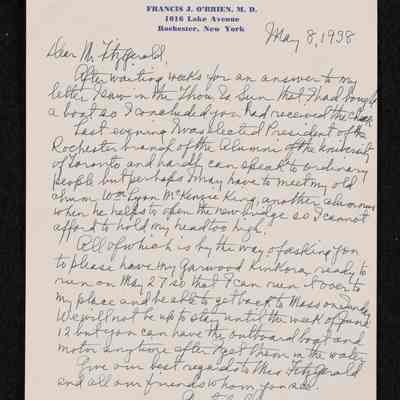 FRANCIS J. O'BRIEN, M. D.
1016 Lake Avenue
Rochester, New York
May 8, 1938
Dear Mr Fitzgerald,
After waiting weeks for an answer to my
letter I saw in the Thou Is Sun that I had bought
a boat so I concluded you had received the check
Last evening I was elected President of the
Rochester branch of the Alumni of the University
of Toronto and hardly can speak to ordinary
people but perhaps I may have to meet my old
chum Wm Lyon McKenzie King, another alumnus
when he helps to open the new bridge so I cannot
afford to hold my head too high.
All of which is by the way of asking you
to please have my Garwood Kinkora ready to
run on May 27 so that I can run it over to
my place and be able to get back to Mass on Sunday
We will not be up to stay until the week of June
12 but you can have the outboard boat and
motor anytime after I get them in the water
Give our best regards to Mrs Fitzgerald
and all our friends whom you see.